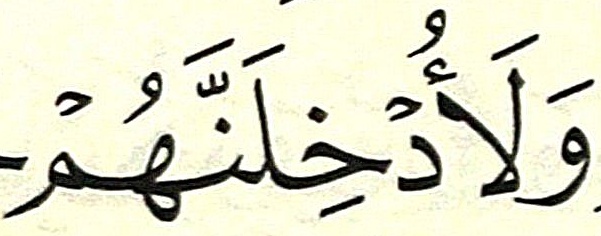 وَلَأُدْخِلَنَّهُمْ